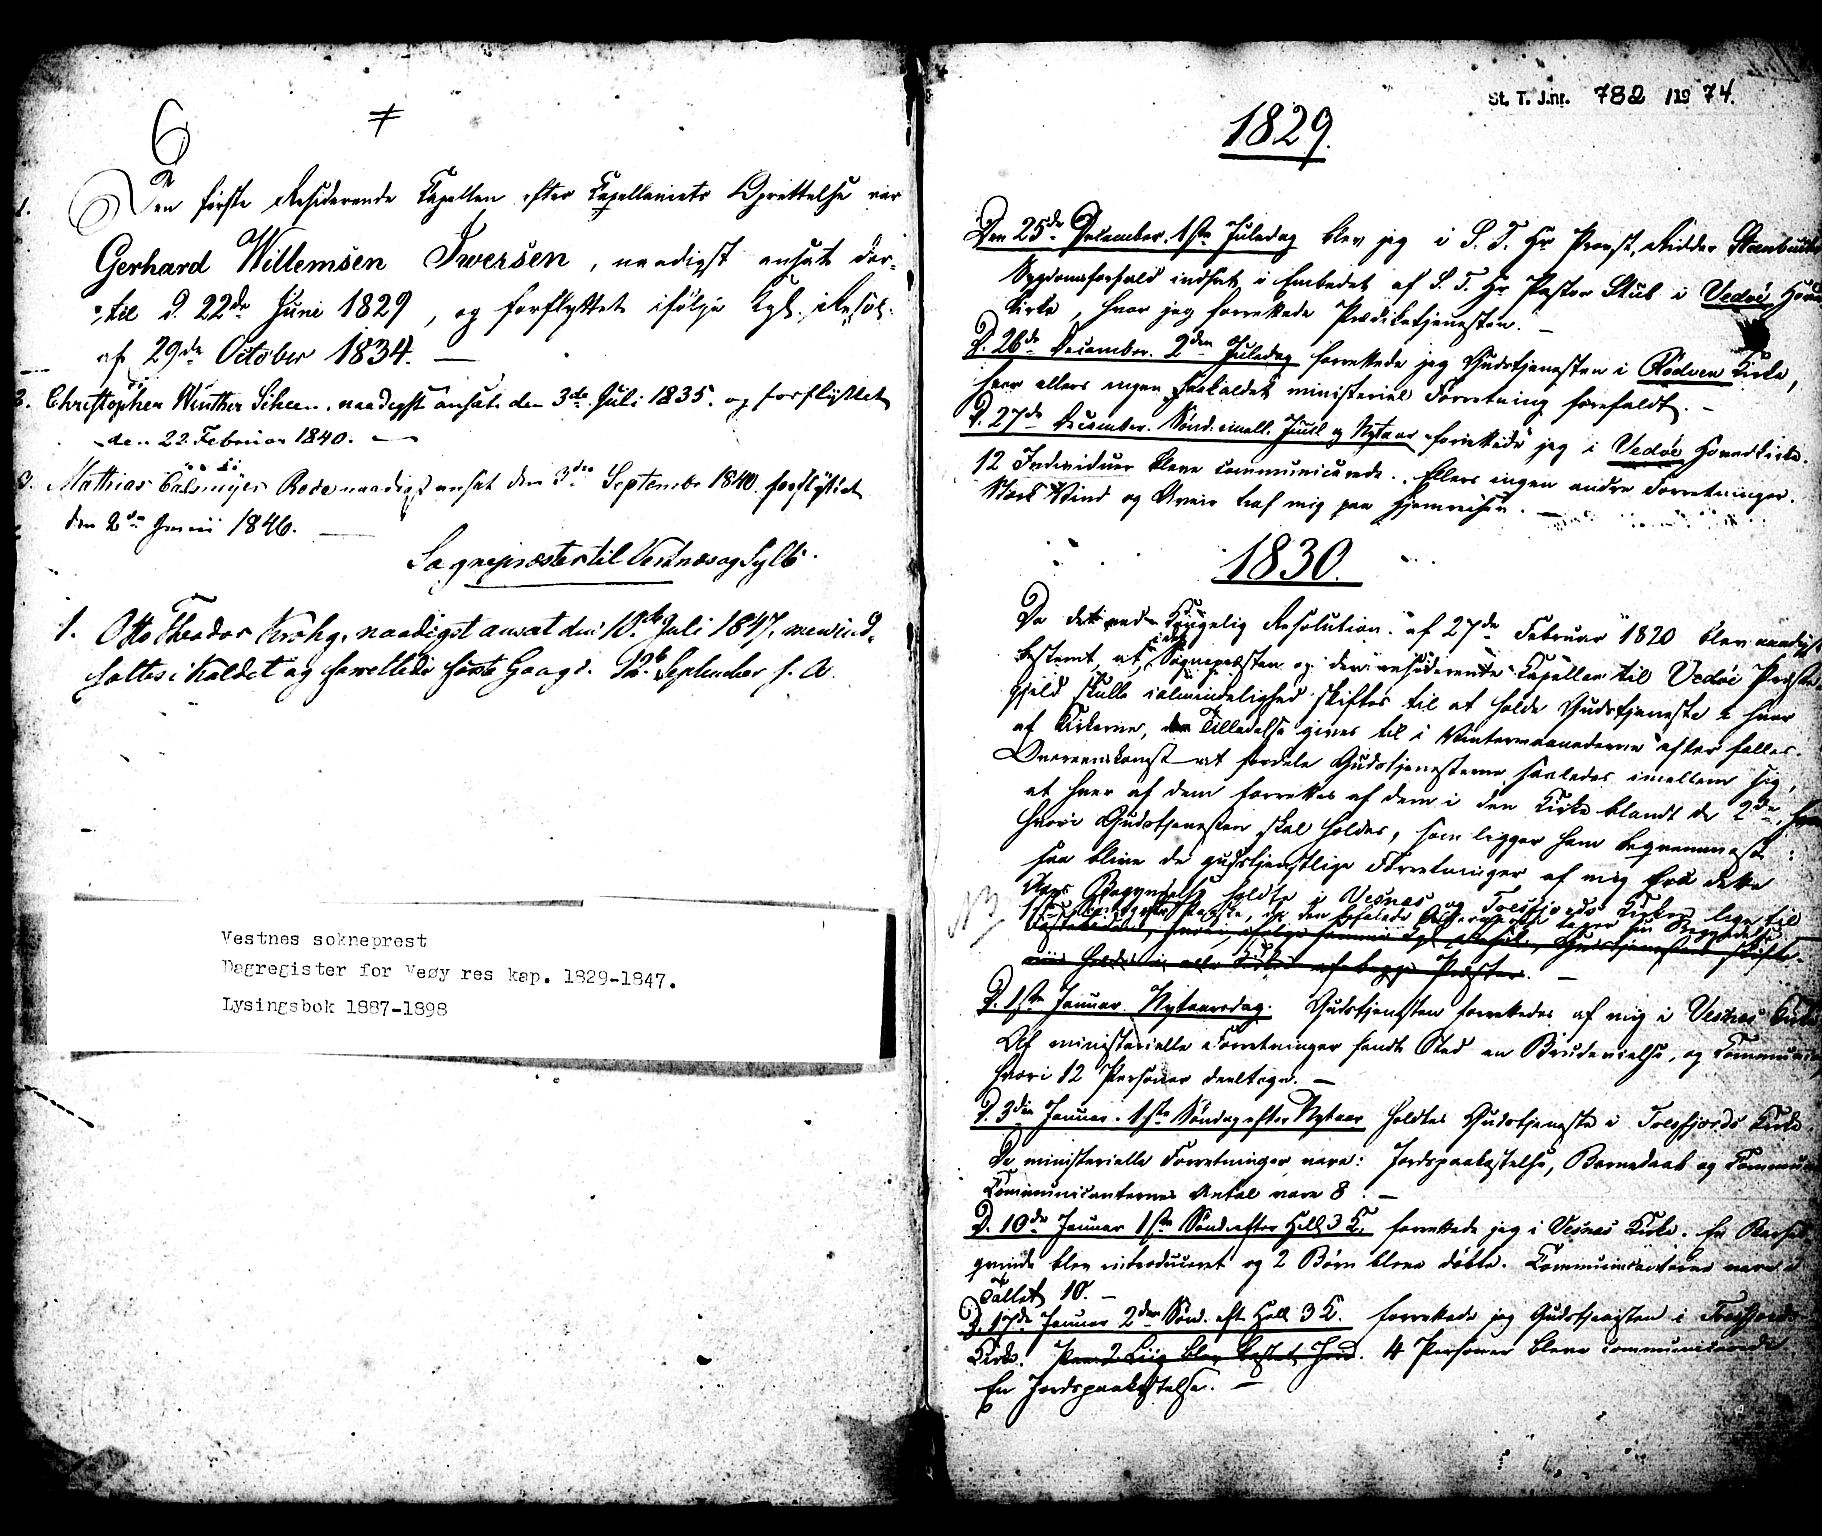 6
1. Den første Residerende Kapellan efter Kapellaniets Oprettelse var
Gerhard Willemsen Iversen, naadigst ansat der-
til d. 22de Juni 1829, og forflyttet ifølge Kgl. Resol.
af 29de October 1834. —
2. Christopher Winther Scheen, naadigst ansat den 3de Juli 1835. og forflyttet
den 22. Februar 1840. —
3. Mathias Rode naadigst ansat den 3die September 1840. forflyttet
den 2den 1846. —
Sognepræster til Vestnes og Sylte
1. Otto Theodor Krohg, naadigst ansat den 10de Juli 1847, men ind-
sattes i Kaldet og forrettede første Gang d. 12te September s. A.
Vestnes sokneprest
Dagregister for Veøy res kap. 1829-1847.
Lysingsbok 1887-1898
St. T. J.nr. 782 /19 74.
1829.
Den 25de December. 1ste Juledag blev jeg i S. T. Hr Provst, Ridder
Sygdomsforfald indsat i Embedet af S. T. Hr Pastor Stub i Vedøe
Kirke, hvor jeg forrettede Prædiketjenesten. —
D. 26de December. 2den Juledag forrettede jeg Gudstjenesten i Rødven Kirke,
hvor ellers ingen saakaldet ministeriel Forretning forefaldt. —
D. 27de December. Sønd. imell. Juul og Nytaar forrettede jeg i Vedøe Hovedkirke.
12 Individuer bleve communicerede. Ellers ingen andre Forretninger.
Stærk Vind og Uveir traf mig paa Hjemreisen. —
1830.
Da det ved Kongelig Resolution af 27de Februar 1820 blev naadigst
bestemt, at Sognepræsten og den residerende Kapellan til Vedøe Præste-
gjeld skulle i almindelighed skiftes til at holde Gudstjeneste i hver
af Kirkerne, Tilladelse gives til i Vintermaanederne efter fælles
Overeenskomst at fordele Gudstjenesterne saaledes imellem sig,
at hver af dem forrettes af dem i den Kirke blandt de 2de,
hvori Gudstjenesten skal holdes, som ligger ham beqvemmest:
saa blive de gudstjenstlige Forretninger af mig fra dette
Aars Begyndelse holdte i Vesnæs og Tresfjords Kirker lige til
NB
D. 1ste Januar Nytaarsdag. Gudstjenesten forrettedes af mig i Vesnæs Kirke
Af ministerielle Forretninger fandt Sted en Brudevielse, og
hvori 12 Personer deeltoge. —
D. 3die Januar. 1ste Søndag efter Nytaar holdtes Gudstjeneste i Tresfjords Kirke.
De ministerielle Forretninger vare: Jordspaakastelse, Barnedaab og
Communicanternes Antal vare 8. —
D. 10de Januar 1ste Sønd. efter Hell. 3 K. forrettede jeg i Vesnæs Kirke. En
qvinde blev introduceret og 2 Børn bleve døbte. Communicanterne vare i
Tallet 10. —
D. 17de Januar 2den Sønd. eft Hell 3 K. forrettede jeg Gudstjenesten i Tresfjords
Kirke. Paa 2 Liig blev kastet Jord. 4 Personer bleve communicerede.
En Jordspaakastelse. —